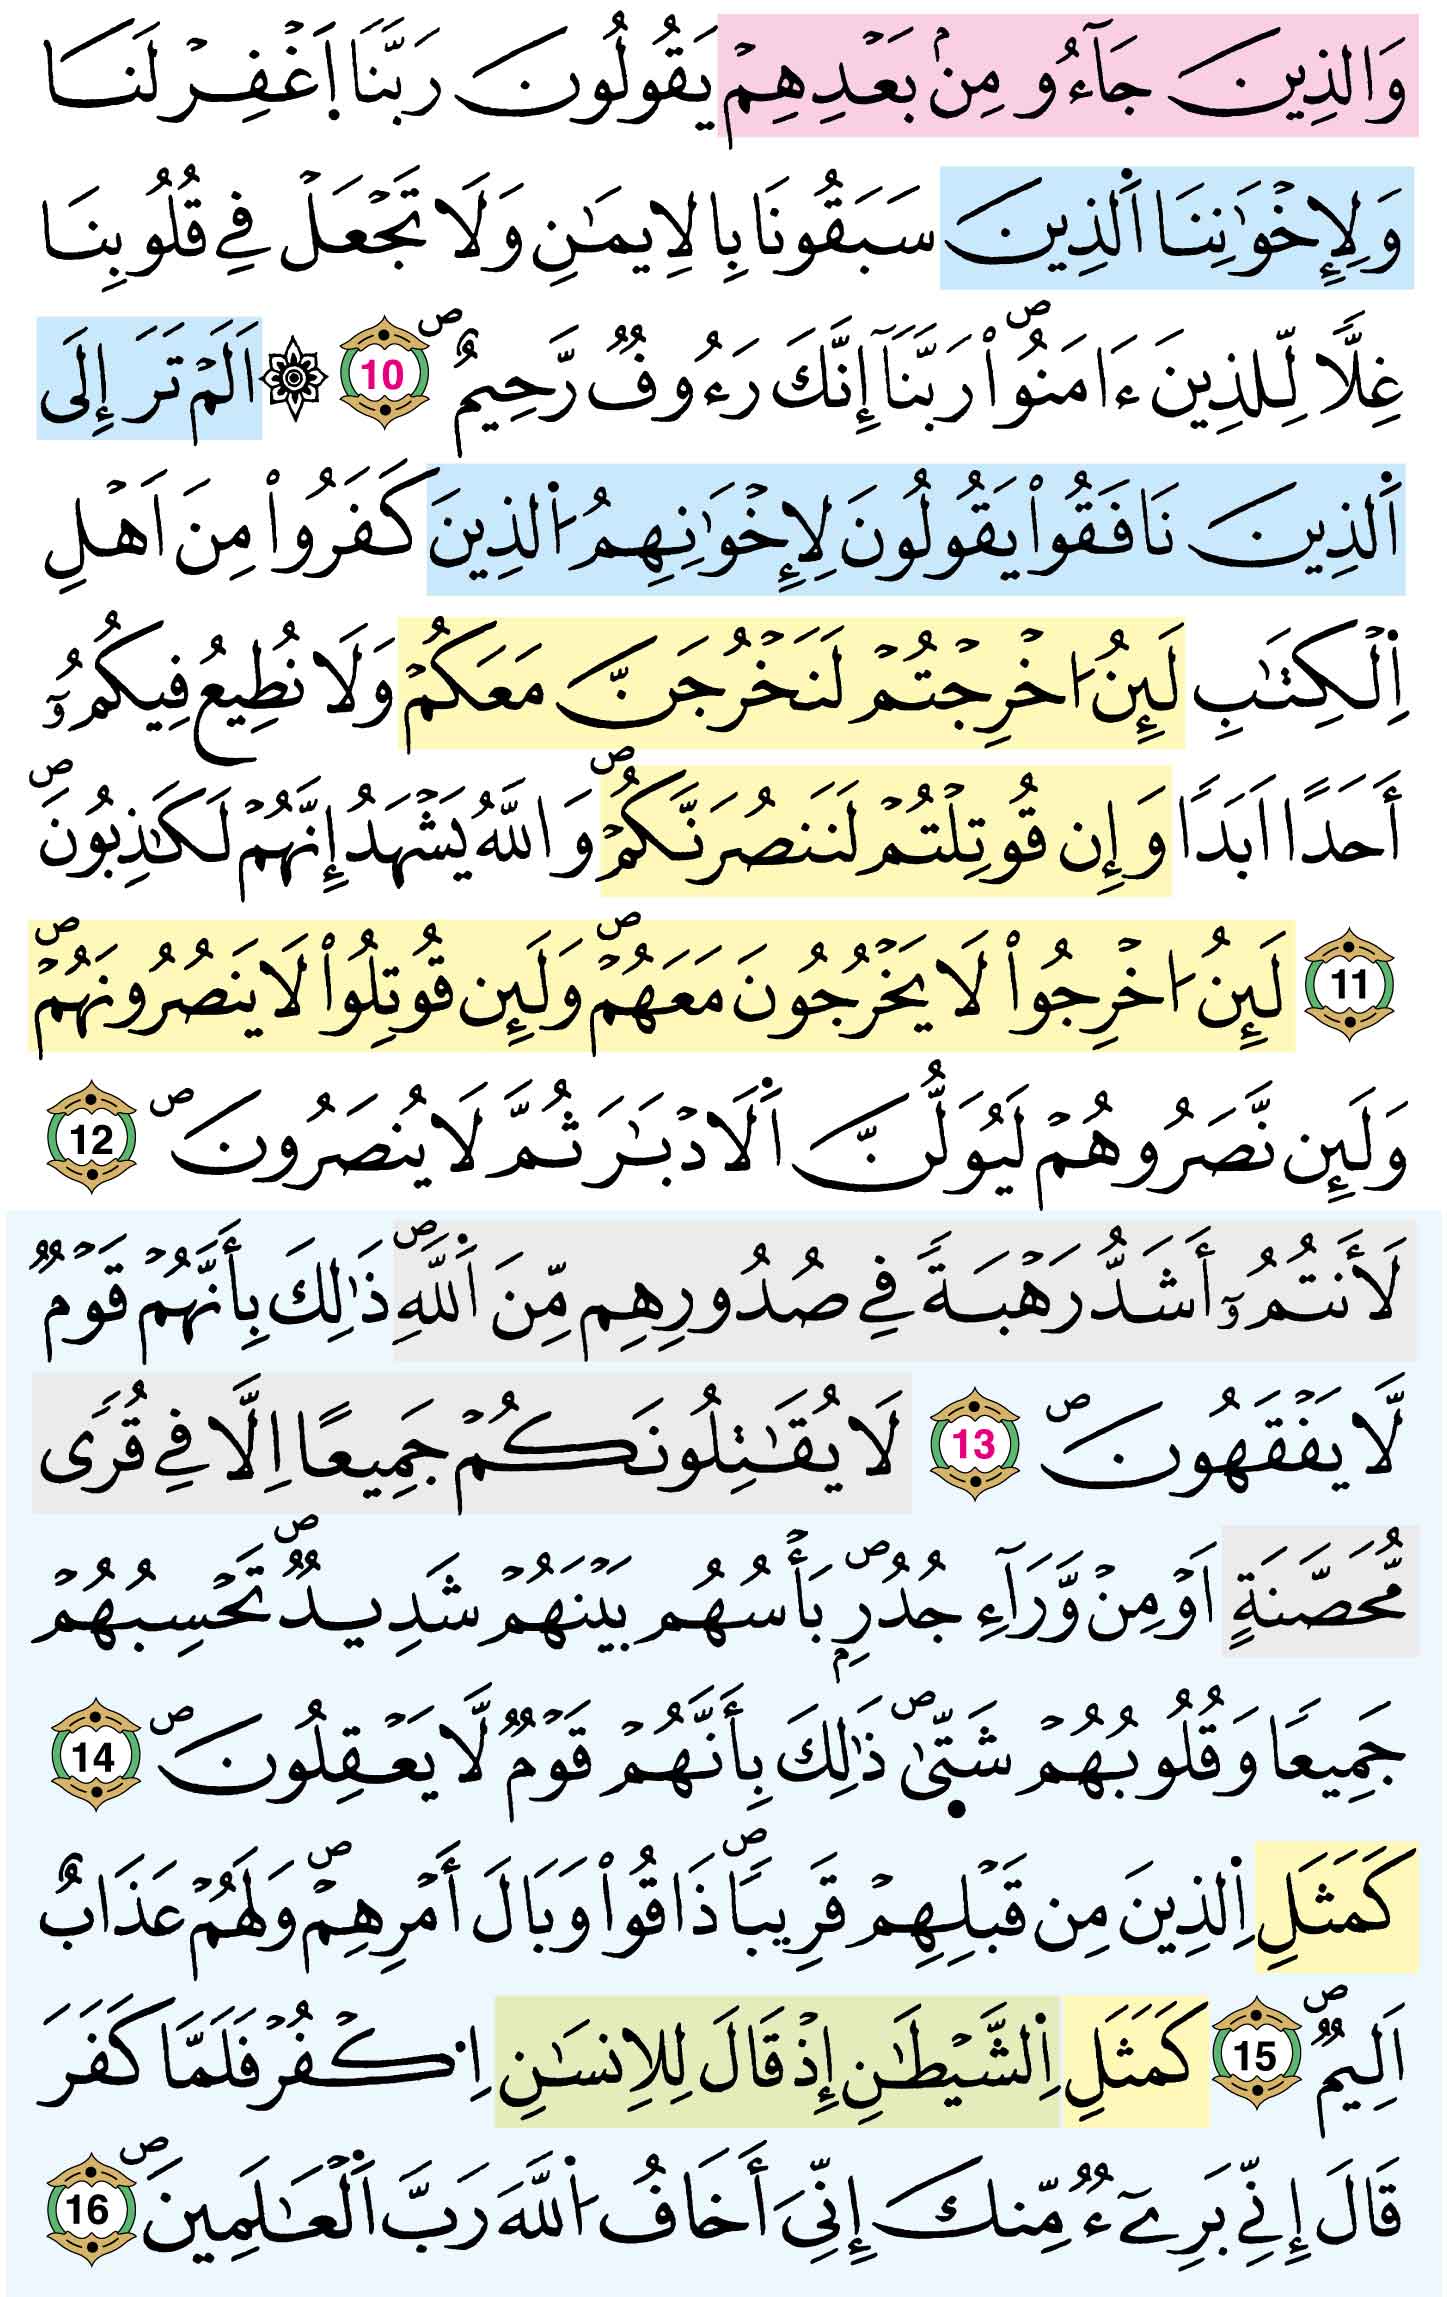 وَالذِينَ جَآءُو مِنۢ بَعْدِهِمْ يَقُولُونَ رَبَّنَا اَ۪غْفِرْ لَنَا
وَلِإِخْوَٰنِنَا اَ۬لذِينَ سَبَقُونَا بِالِايمَٰنِ وَلَا تَجْعَلْ فِے قُلُوبِنَا
غِلّٗا لِّلذِينَ ءَامَنُواْۖ رَبَّنَآ إِنَّكَ رَءُوفٞ رَّحِيمٌۖ 10 ۞ اَلَمْ تَرَ إِلَى
اَ۬لذِينَ نَافَقُواْ يَقُولُونَ لِإِخْوَٰنِهِمُ اُ۬لذِينَ كَفَرُواْ مِنَ اَهْلِ
اِ۬لْكِتَٰبِ لَئِنُ ا۟خْرِجْتُمْ لَنَخْرُجَنَّ مَعَكُمْ وَلَا نُطِيعُ فِيكُمُۥٓ
أَحَداً اَبَداً وَإِن قُوتِلْتُمْ لَنَنصُرَنَّكُمْۖ وَاللَّهُ يَشْهَدُ إِنَّهُمْ لَكَٰذِبُونَۖ
11 لَئِنُ ا۟خْرِجُواْ لَا يَخْرُجُونَ مَعَهُمْۖ وَلَئِن قُوتِلُواْ لَا يَنصُرُونَهُمْۖ
وَلَئِن نَّصَرُوهُمْ لَيُوَلُّنَّ اَ۬لَادْبَٰرَ ثُمَّ لَا يُنصَرُونَۖ 12
لَأَنتُمُۥٓ أَشَدُّ رَهْبَةٗ فِے صُدُورِهِم مِّنَ اَ۬للَّهِۖ ذَٰلِكَ بِأَنَّهُمْ قَوْمٞ
لَّا يَفْقَهُونَۖ 13 لَا يُقَٰتِلُونَكُمْ جَمِيعاً اِلَّا فِے قُرىٗ
مُّحَصَّنَةٍ اَوْ مِنْ وَّرَآءِ جُدُرِۢۖ بَأْسُهُم بَيْنَهُمْ شَدِيدٞۖ تَحْسِبُهُمْ
جَمِيعاٗ وَقُلُوبُهُمْ شَتّ۪يٰۖ ذَٰلِكَ بِأَنَّهُمْ قَوْمٞ لَّا يَعْقِلُونَۖ 14
كَمَثَلِ اِ۬لذِينَ مِن قَبْلِهِمْ قَرِيباٗۖ ذَاقُواْ وَبَالَ أَمْرِهِمْۖ وَلَهُمْ عَذَابٌ
اَلِيمٞۖ 15 كَمَثَلِ اِ۬لشَّيْطَٰنِ إِذْ قَالَ لِلِانسَٰنِ اِ۟كْفُرْ فَلَمَّا كَفَرَ
قَالَ إِنِّے بَرِےٓءٞ مِّنكَ إِنِّيَ أَخَافُ اُ۬للَّهَ رَبَّ اَ۬لْعَٰلَمِينَۖ 16